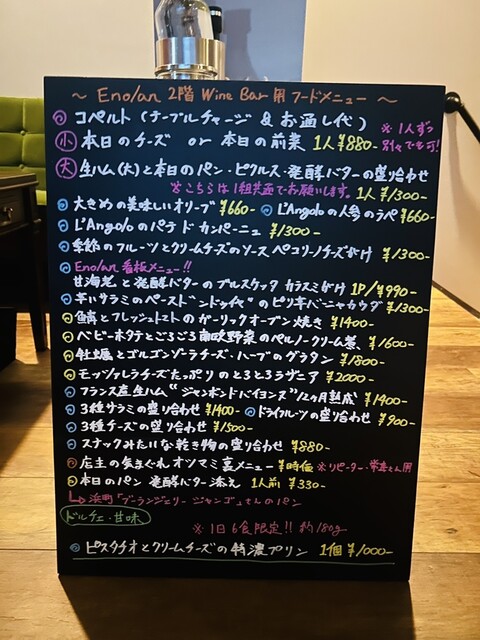 ～ Enolan 2階 Wine Bar 用 フードメニュー ～
コペルト (テーブルチャージ & お通し代)
※1人ずつ別々でも可!
小 本日のチーズ or 本日の前菜 1人 ¥880-
大 生ハム(大)と本日のパン・ピクルス・発酵バターの盛り合わせ
※こちらは1組共通でお願いします。 1人 ¥1300-
大きめの美味しいオリーブ ¥660- L'Angoloの人参のラペ ¥660-
L'Angoloのパテ ド カンパーニュ ¥1300-
季節のフルーツとクリームチーズのソース ペコリーノチーズがけ ¥1300-
Enolan 看板メニュー!!
甘海老と発酵バターのブルスケッタ カラスミがけ 1P/¥990-
辛いサラミのペースト"ンドゥイヤ"のピリ辛バーニャカウダ ¥1300-
鱈とフレッシュトマトのガーリックオーブン焼き ¥1400-
ベビーホタテとごろごろ南欧野菜のペルノークリーム煮 ¥1600-
牡蠣とゴルゴンゾーラチーズ・ハーブのグラタン ¥1800-
モッツァレラチーズたっぷりのとろとろラザニア ¥2000-
フランス産生ハム"ジャンボンドバイヨンヌ"12ヵ月熟成 ¥1400-
3種サラミの盛り合わせ ¥1400- ドライフルーツの盛り合わせ ¥900-
3種チーズの盛り合わせ ¥1500-
スナックみたいな乾き物の盛り合わせ ¥880-
店主の気まぐれオツマミ裏メニュー ¥時価 ※リピーター・常連さん用
本日のパン 発酵バター添え 1人前 ¥330-
↳浜町「ブーランジェリー ジャンゴ」さんのパン
ドルチェ・甘味
※1日6食限定!! 約180g
ピスタチオとクリームチーズの特濃プリン 1個 ¥1000-